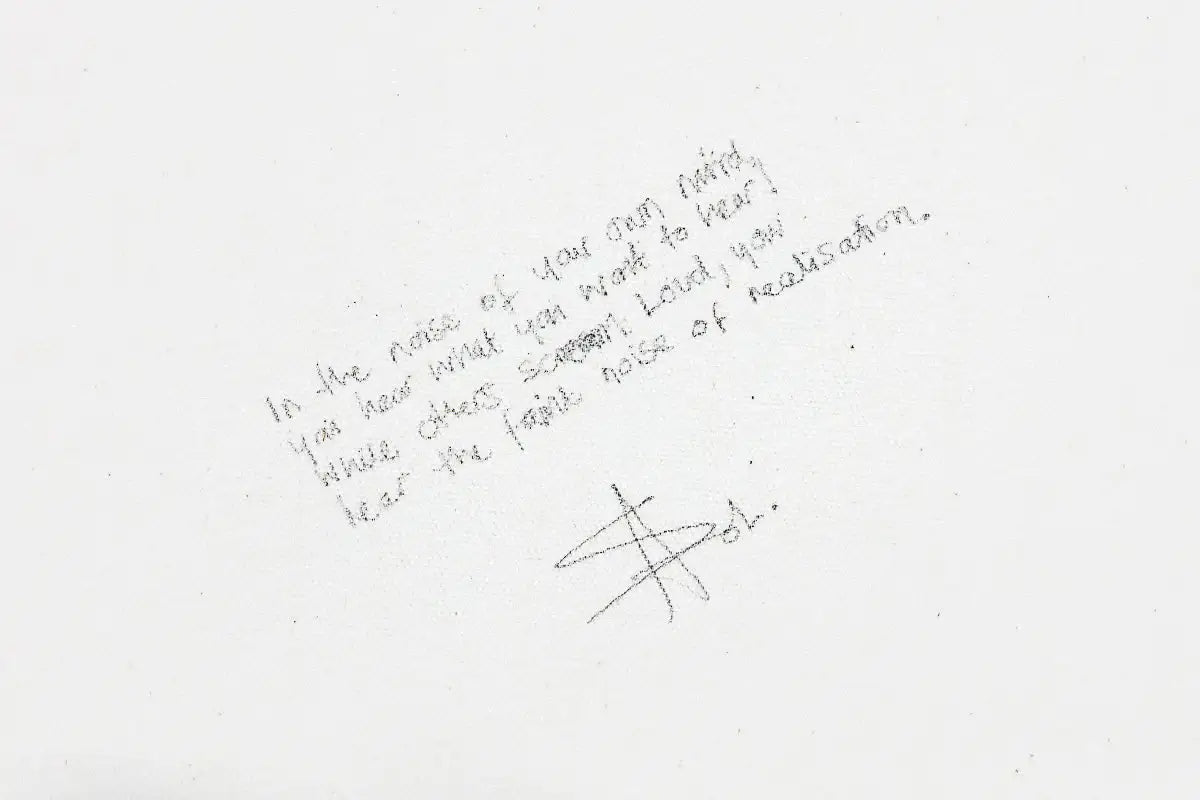 In the noise of your own mind,
you hear what you want to hear,
while others scream loud, you
hear the faint noise of realisation.